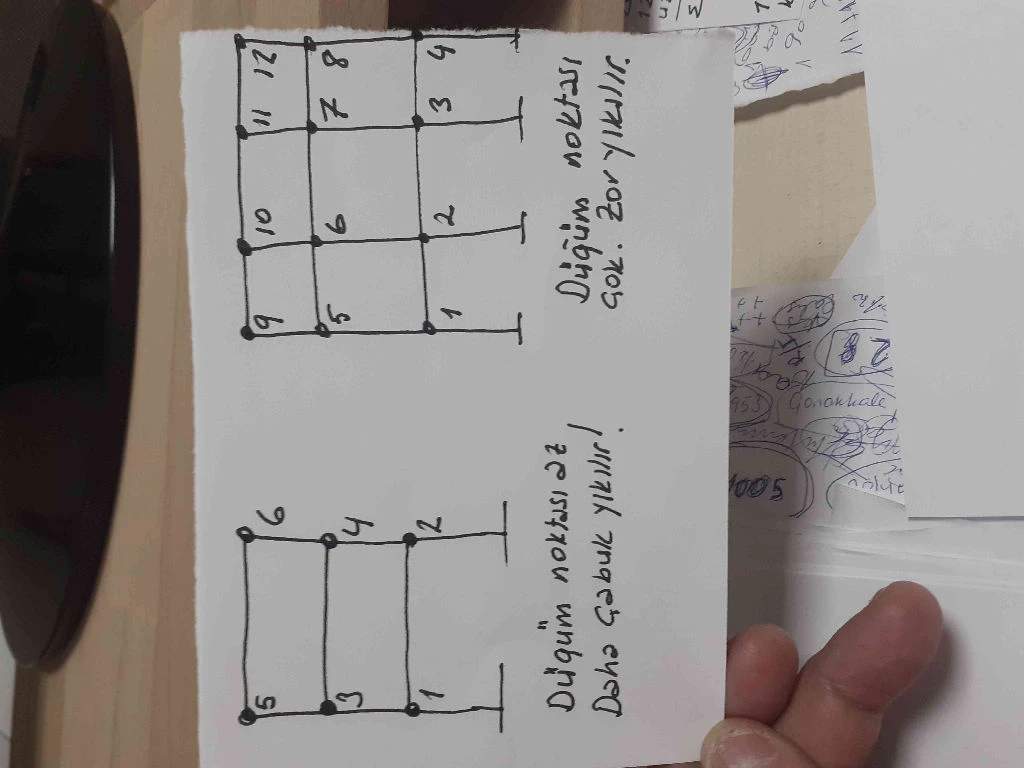 5 6
3 4
1 2
Düğüm noktası az
Daha çabuk yıkılır!
9 10 11 12
5 6 7 8
1 2 3 4
Düğüm noktası
çok. Zor yıkılır.
Çanakkale